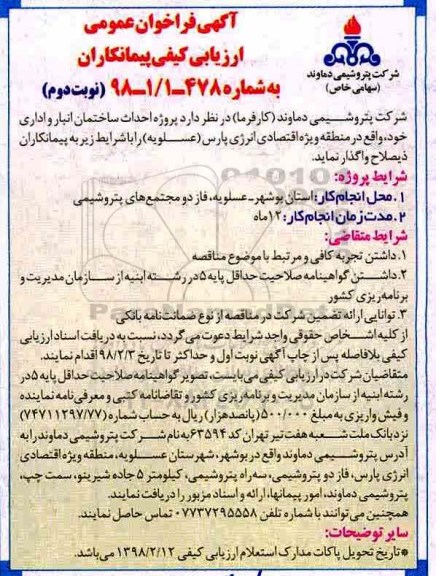 آگهی فراخوان عمومی
ارزیابی کیفی پیمانکاران
به شماره ۴۷۸-۱/۱-۹۸ (نوبت دوم)
شرکت پتروشیمی دماوند
(سهامی خاص)
شرکت پتروشیمی دماوند (کارفرما) در نظر دارد پروژه احداث ساختمان انبار و اداری
خود، واقع در منطقه ویژه اقتصادی انرژی پارس (عسلویه) را با شرایط زیر به پیمانکاران
ذیصلاح واگذار نماید.
شرایط پروژه:
۱. محل انجام کار: استان بوشهر - عسلویه، فاز دو مجتمع‌های پتروشیمی
۲. مدت زمان انجام کار: ۱۲ماه
شرایط متقاضی:
۱. داشتن تجربه کافی و مرتبط با موضوع مناقصه
۲. داشتن گواهینامه صلاحیت حداقل پایه ۵ در رشته ابنیه از سازمان مدیریت و
برنامه‌ریزی کشور
۳. توانایی ارائه تضمین شرکت در مناقصه از نوع ضمانت‌نامه بانکی
از کلیه اشخاص حقوقی واجد شرایط دعوت می‌گردد، نسبت به دریافت اسناد ارزیابی
کیفی بلافاصله پس از چاپ آگهی نوبت اول و حداکثر تا تاریخ ۹۸/۲/۳ اقدام نمایند.
متقاضیان شرکت در ارزیابی کیفی می‌بایست، تصویر گواهینامه صلاحیت حداقل پایه ۵ در
رشته ابنیه از سازمان مدیریت و برنامه‌ریزی کشور و تقاضانامه کتبی و معرفی‌نامه نماینده
و فیش واریزی به مبلغ ۵۰۰/۰۰۰ (پانصدهزار) ریال به حساب شماره (۷۴۷۱۱۲۹۷/۷۷)
نزد بانک ملت شعبه هفت تیر تهران کد ۶۳۵۹۴ به نام شرکت پتروشیمی دماوند را به
آدرس پتروشیمی دماوند واقع در بوشهر، شهرستان عسلویه، منطقه ویژه اقتصادی
انرژی پارس، فاز دو پتروشیمی، سه‌راه پتروشیمی، کیلومتر ۵ جاده شیرینو، سمت چپ،
پتروشیمی دماوند، امور پیمانها، ارائه و اسناد مزبور را دریافت نمایند.
همچنین می‌توانند با شماره تلفن ۰۷۷۳۷۲۹۵۵۵۸ تماس حاصل نمایند.
سایر توضیحات:
*تاریخ تحویل پاکات مدارک استعلام ارزیابی کیفی ۱۳۹۸/۲/۱۲ می‌باشد.